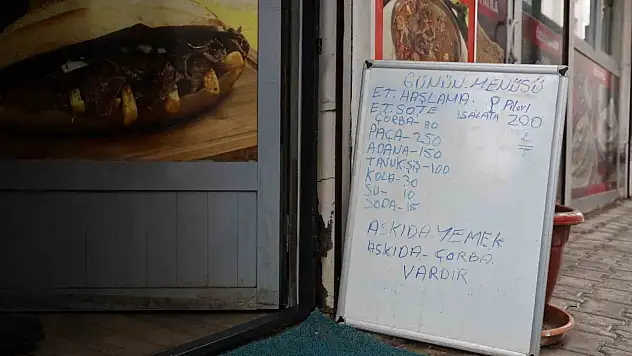 GÜNÜN MENÜSÜ
ET. HAŞLAMA. Pilavl
ET. SOTE SALATA 200
ÇORBA- 80
PAÇA- 250
ADANA- 150
TAVUK ŞİŞ- 100
KOLA- 30
SU- 10
SODA- 15
ASKIDA YEMEK
ASKIDA- ÇORBA.
VARDIR